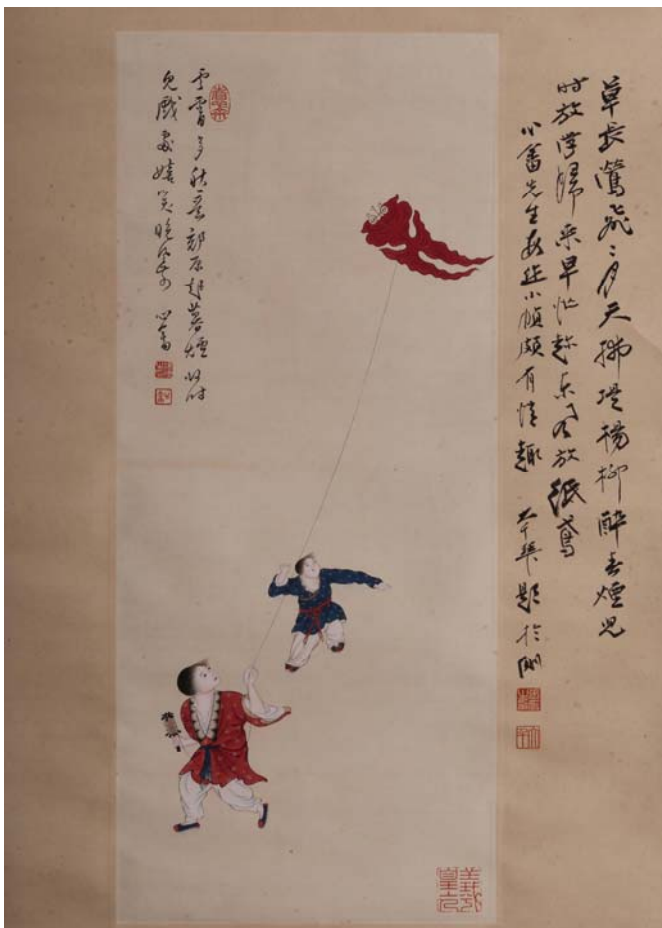 草長鶯飛二月天拂堤楊柳醉春煙兒
時放學歸來早忙趁東風放紙鳶
心畬先生小幀頗有情趣 大千張爰題於
雲霄多秋意郊原起暮煙此时
兒戲處嬉笑晚風前 心畬